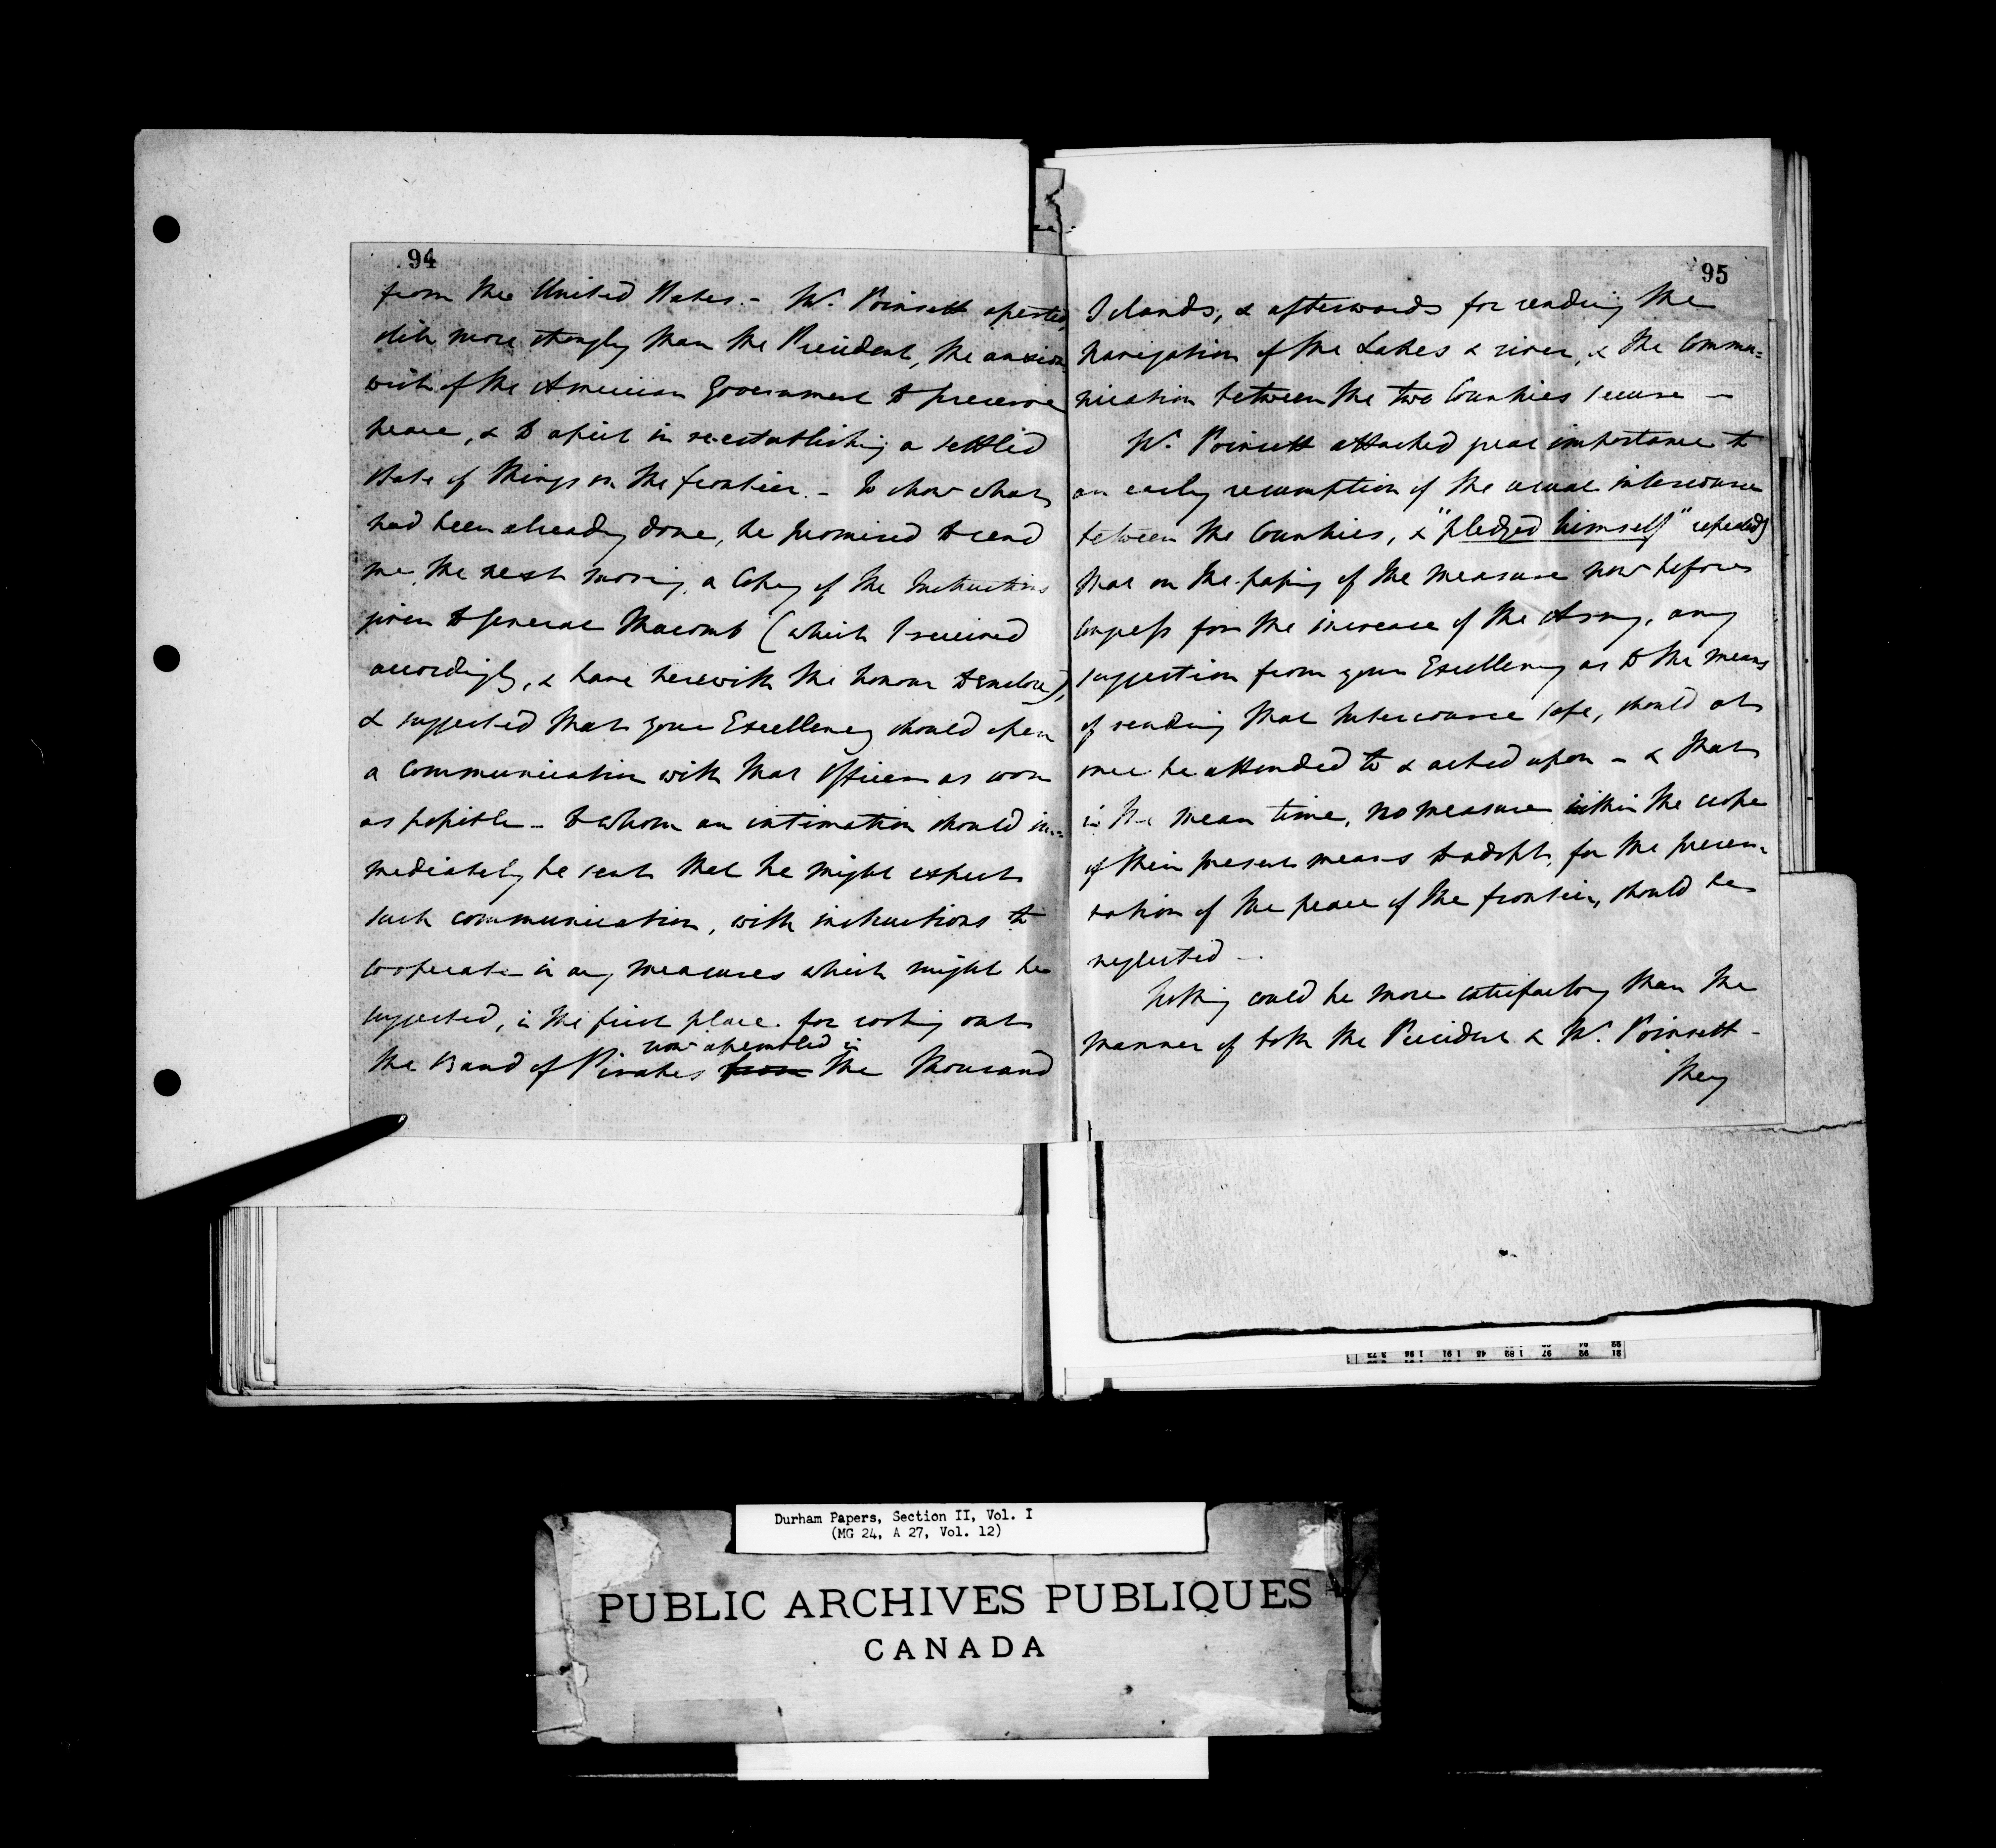 94
from the United States. - Mr. Poinsett asserted,
still more strongly than the President, the anxious
wish of the American Government to preserve
peace, & to assist in re-establishing a settled
State of things on the frontier. - To show what
had been already done, he promised to send
me, the next morning, a Copy of the Instructions
given to General Macomb (which I received
accordingly, & have herewith the honour to enclose),
& suggested that your Excellency should open
a communication with that Officer as soon
as possible - to whom an intimation should im=
mediately be sent that he might expect
such communication, with instructions to
cooperate in any measures which might be
suggested, in the first place for rooting out
now assembled in
the Band of Pirates from the Thousand
95
Islands, & afterwards for rendering the
navigation of the Lakes & river, & the Commu=
nication between the two Countries secure -
Mr. Poinsett attached great importance to
an early resumption of the usual intercourse
between the Countries, & "pledged himself" repeatedly
that on the passing of the measure now before
Congress for the increase of the Army, any
suggestion from your Excellency as to the means
of rendering that Intercourse safe, should at
once be attended to & acted upon - & that
in the mean time, no measure within the scope
of their present means to adopt, for the preser=
vation of the peace of the frontier, should be
neglected -
Nothing could be more satisfactory than the
manner of both the President & Mr. Poinsett -
They
Durham Papers, Section II, Vol. I
(MG 24, A 27, Vol. 12)
PUBLIC ARCHIVES PUBLIQUES
CANADA